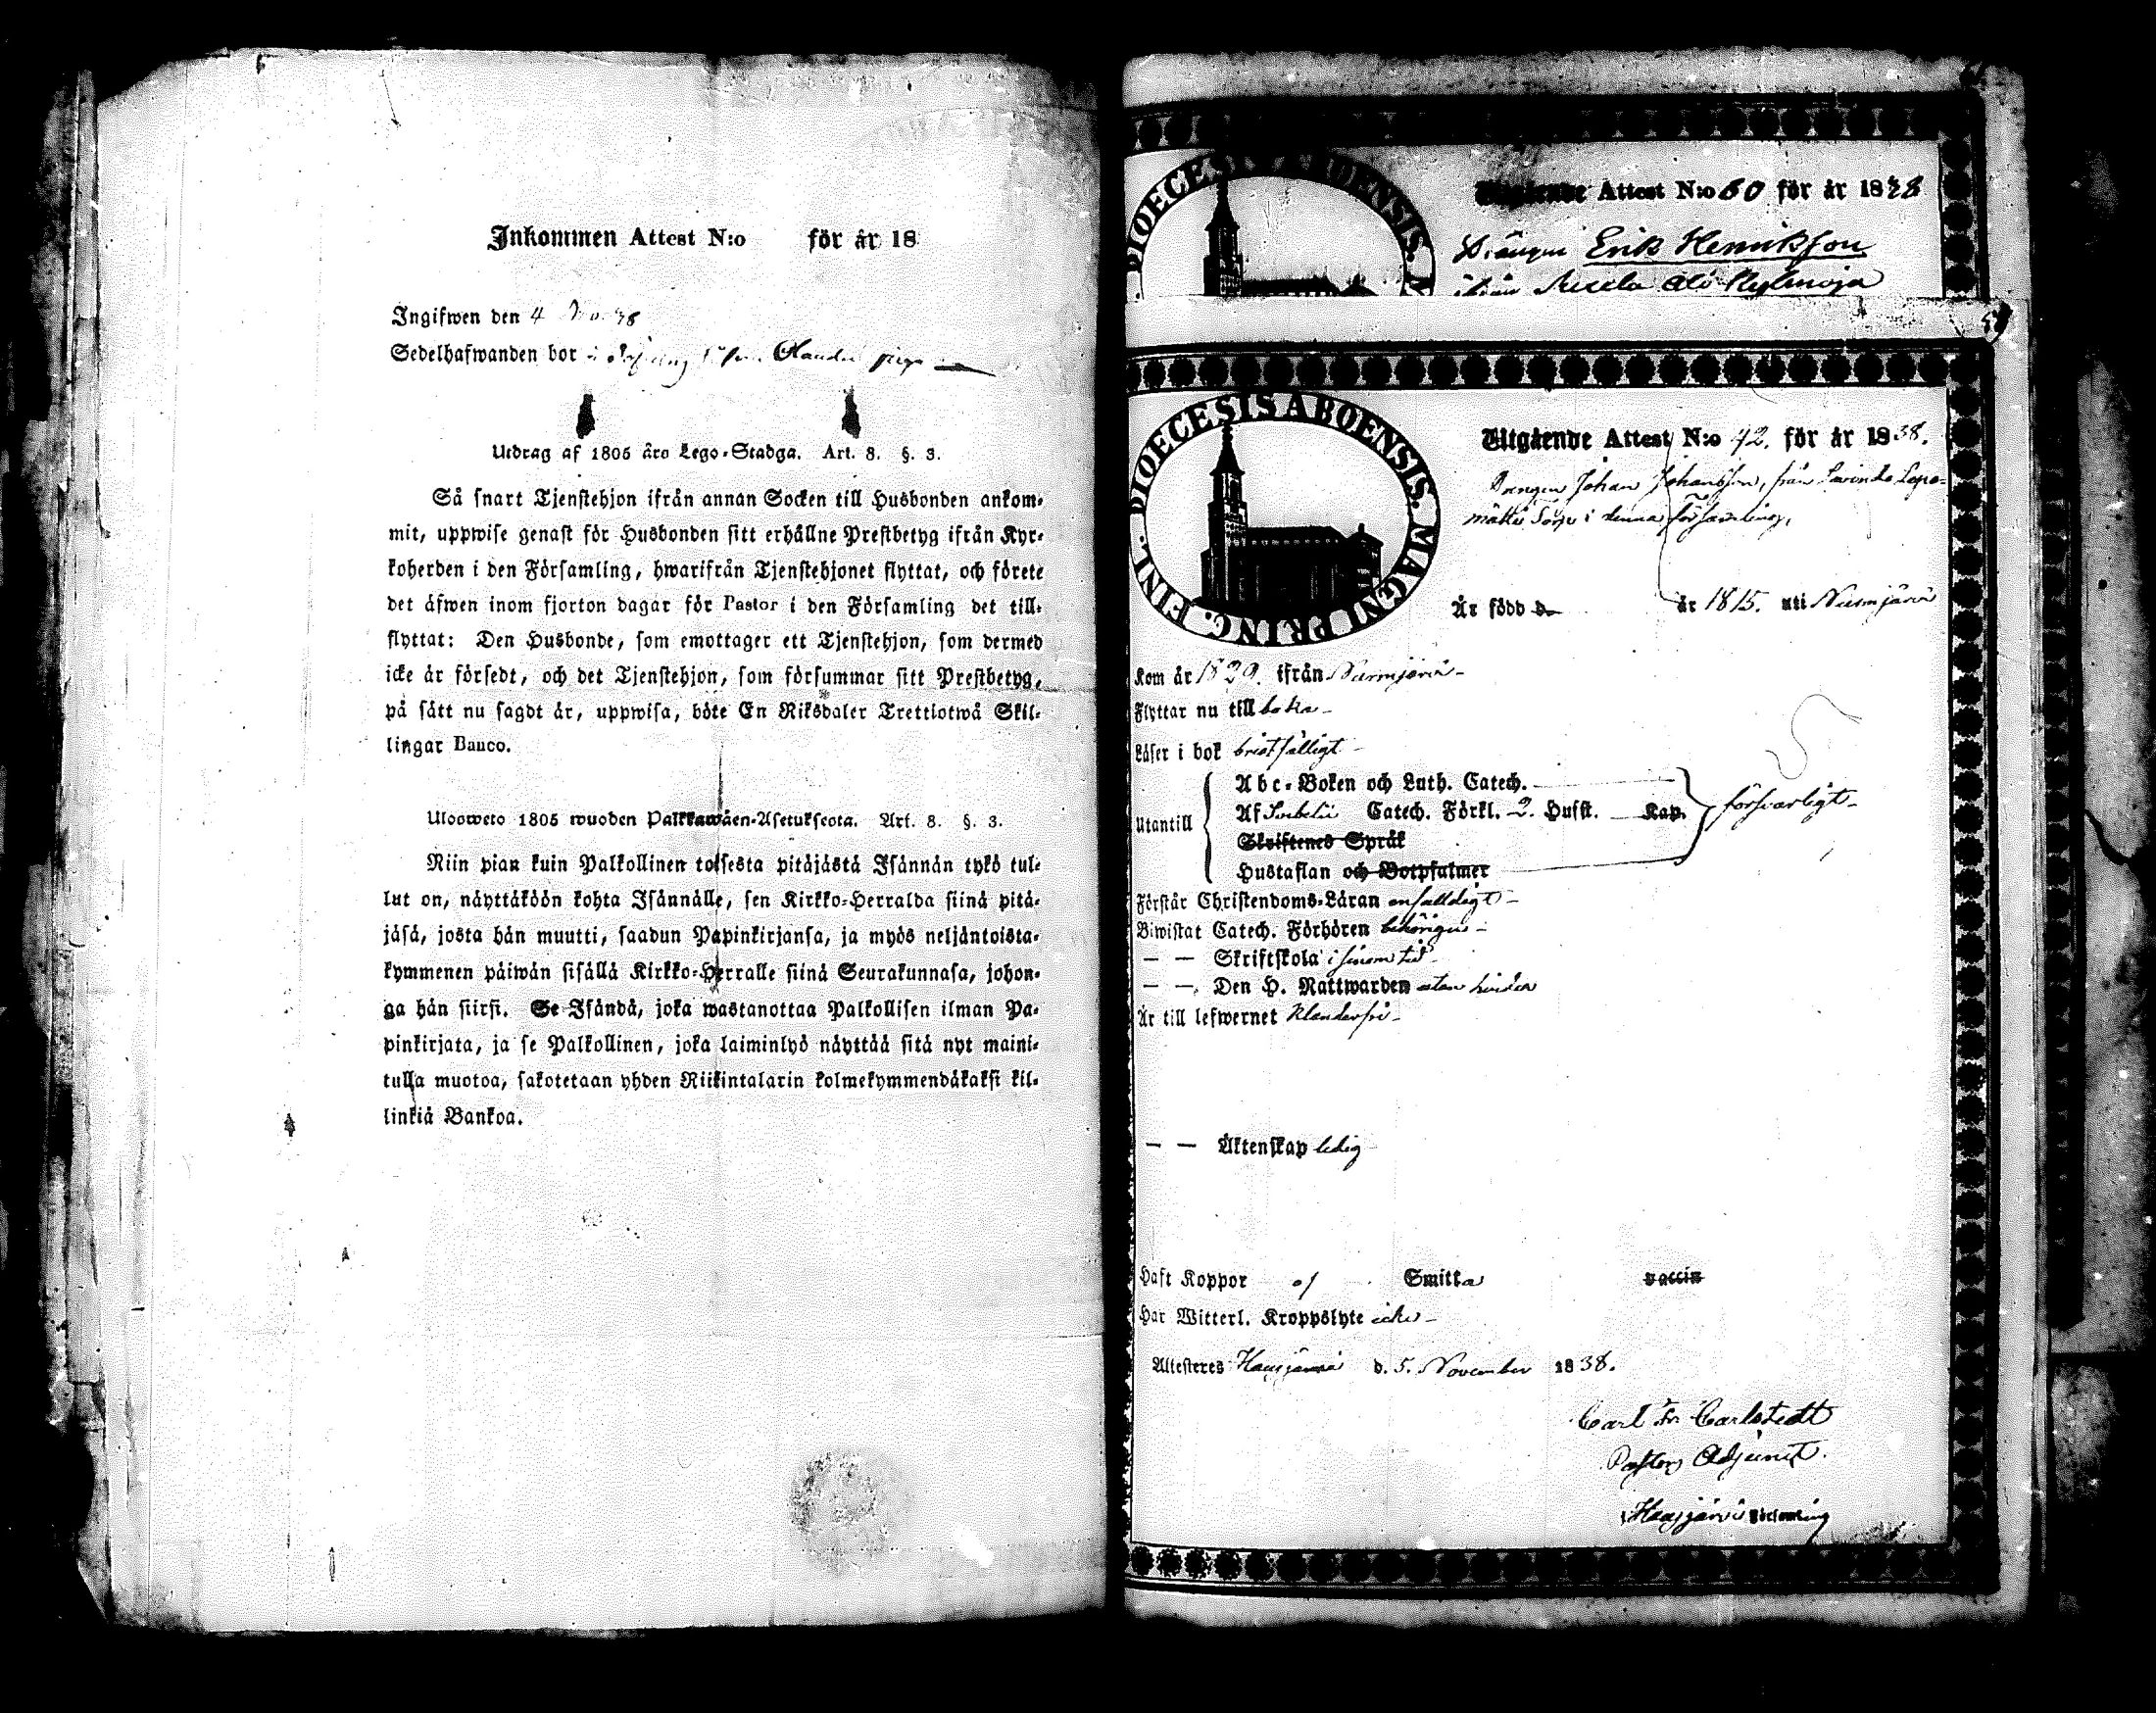 Inkommen Attest N:o för år 18
Ingifwen den 4 38
Sedelhafwanden bor
Utdrag af 1805 års Lego-Stadga. Art. 8. §. 3.
Så snart Tjenstehjon ifrån annan Socken till Husbonden ankom-
mit, uppwise genast för Husbonden sitt erhållne Prestbetyg ifrån Kyr-
koherden i den Församling, hwarifrån Tjenstehjonet flyttat, och förete
det äfwen inom fjorton dagar för Pastor i den Församling det till-
flyttat: Den Husbonde, som emottager ett Tjenstehjon, som dermed
icke är försedt, och det Tjenstehjon, som försummar sitt Prestbetyg,
på sätt nu sagdt är, uppwisa, böte En Riksdaler Trettiotwå Skil-
lingar Banco.
Ulosweto 1805 wuoden Palkkawäen-Asetuksesta. Art. 8. §. 3.
Niin pian kuin Palkollinen toisesta pitäjästä Isännän tykö tul-
lut on, näyttäköön kohta Isännälle, sen Kirkko-Herralda siinä pitä-
jäsä, josta hän muutti, saadun Papinkirjansa, ja myös neljäntoista-
kymmenen päiwän sisällä Kirkko-Herralle siinä Seurakunnasa, johon-
ga hän siirsi. Se Isändä, joka wastanottaa Palkollisen ilman Pa-
pinkirjata, ja se Palkollinen, joka laiminlyö näyttää sitä nyt maini-
tulla muotoa, sakotetaan yhden Riikintalarin kolmekymmendäkaksi kil-
linkiä Bankoa.
DIOECESIS ABOENSIS. M
Utgående Attest N:o 60 för år 1838
Drängen Erik Henriksson
ifrån
DIOECESIS ABOENSIS. MAGNI PRINC. FINL.
Utgående Attest N:o 42. för år 1838.
Drengen Johan Johansson, från
i denna församling,
Är född d. år 1815. uti Nurmijärvi
Kom år 1829. ifrån Nurmijärvi
Flyttar nu till
Läser i bok bristfälligt
Utantill
Abc-Boken och Luth. Catech.
Af Svebelii Catech. Förkl. 2. Husst. Kap.
Skriftenes Språk
Hustaflan och Botpsalmer
försvarligt
Förstår Christendoms-Läran enfalldigt
Biwistat Catech. Förhören behörigen
— — Skriftskola i sinom tid
— — Den H. Nattwarden utan hinder
Är till lefwernet klanderfri
— — Äktenskap ledig
Haft Koppor ej Smitta vaccin
Har Witterl. Kroppslyte icke
Attesteres Hausjärvi d. 5. November 1838.
Carl Fr Carlstedt
Pastors Adjunct.
Hausjärvi Församling